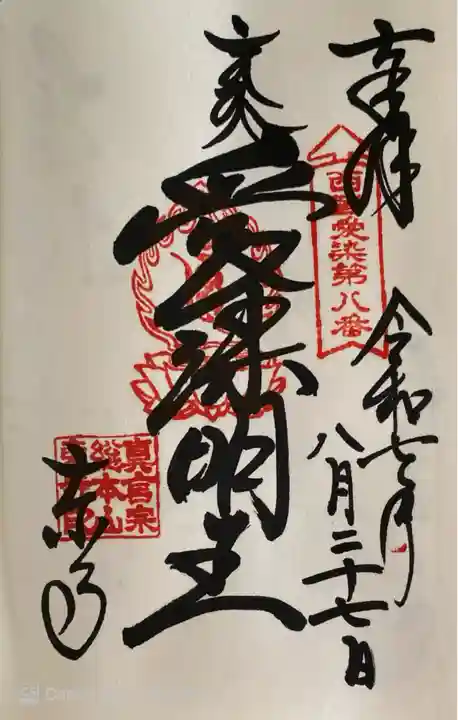 奉拝
西國愛染第八番
令和七年
八月二十七日
愛染明王
真言宗
総本山
東寺